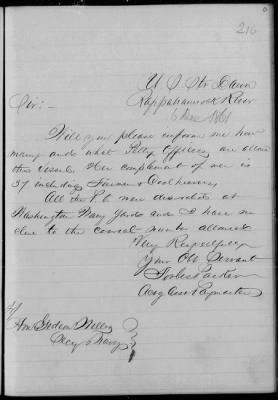 216
U. S. Str. Dawn
Rappahannock River
6 1861
Sir:—
Will you please inform me how
many and what Petty Officers are allowed
this vessel. Her complement of men is
37 including Firemen & Coal heavers
All the P. O. were discharged at
Washington Navy Yard and I have no
clue to the correct number allowed
Very Respectfully
Your Obt Servant
Forbes Parker
Actg Asst Paymaster
Hon. Gideon Welles
Secy of Navy